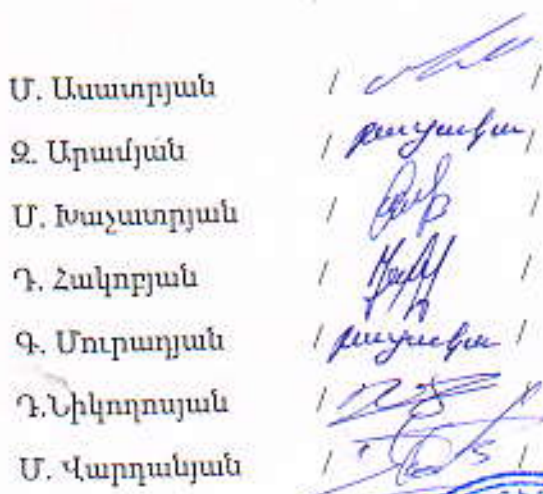 Մ. Ասատրյան / /
Զ. Արամյան / բացակա /
Մ. Խաչատրյան / /
Դ. Հակոբյան / /
Գ. Մուրադյան / բացակա /
Դ.Նիկողոսյան / /
Մ. Վարդանյան / /